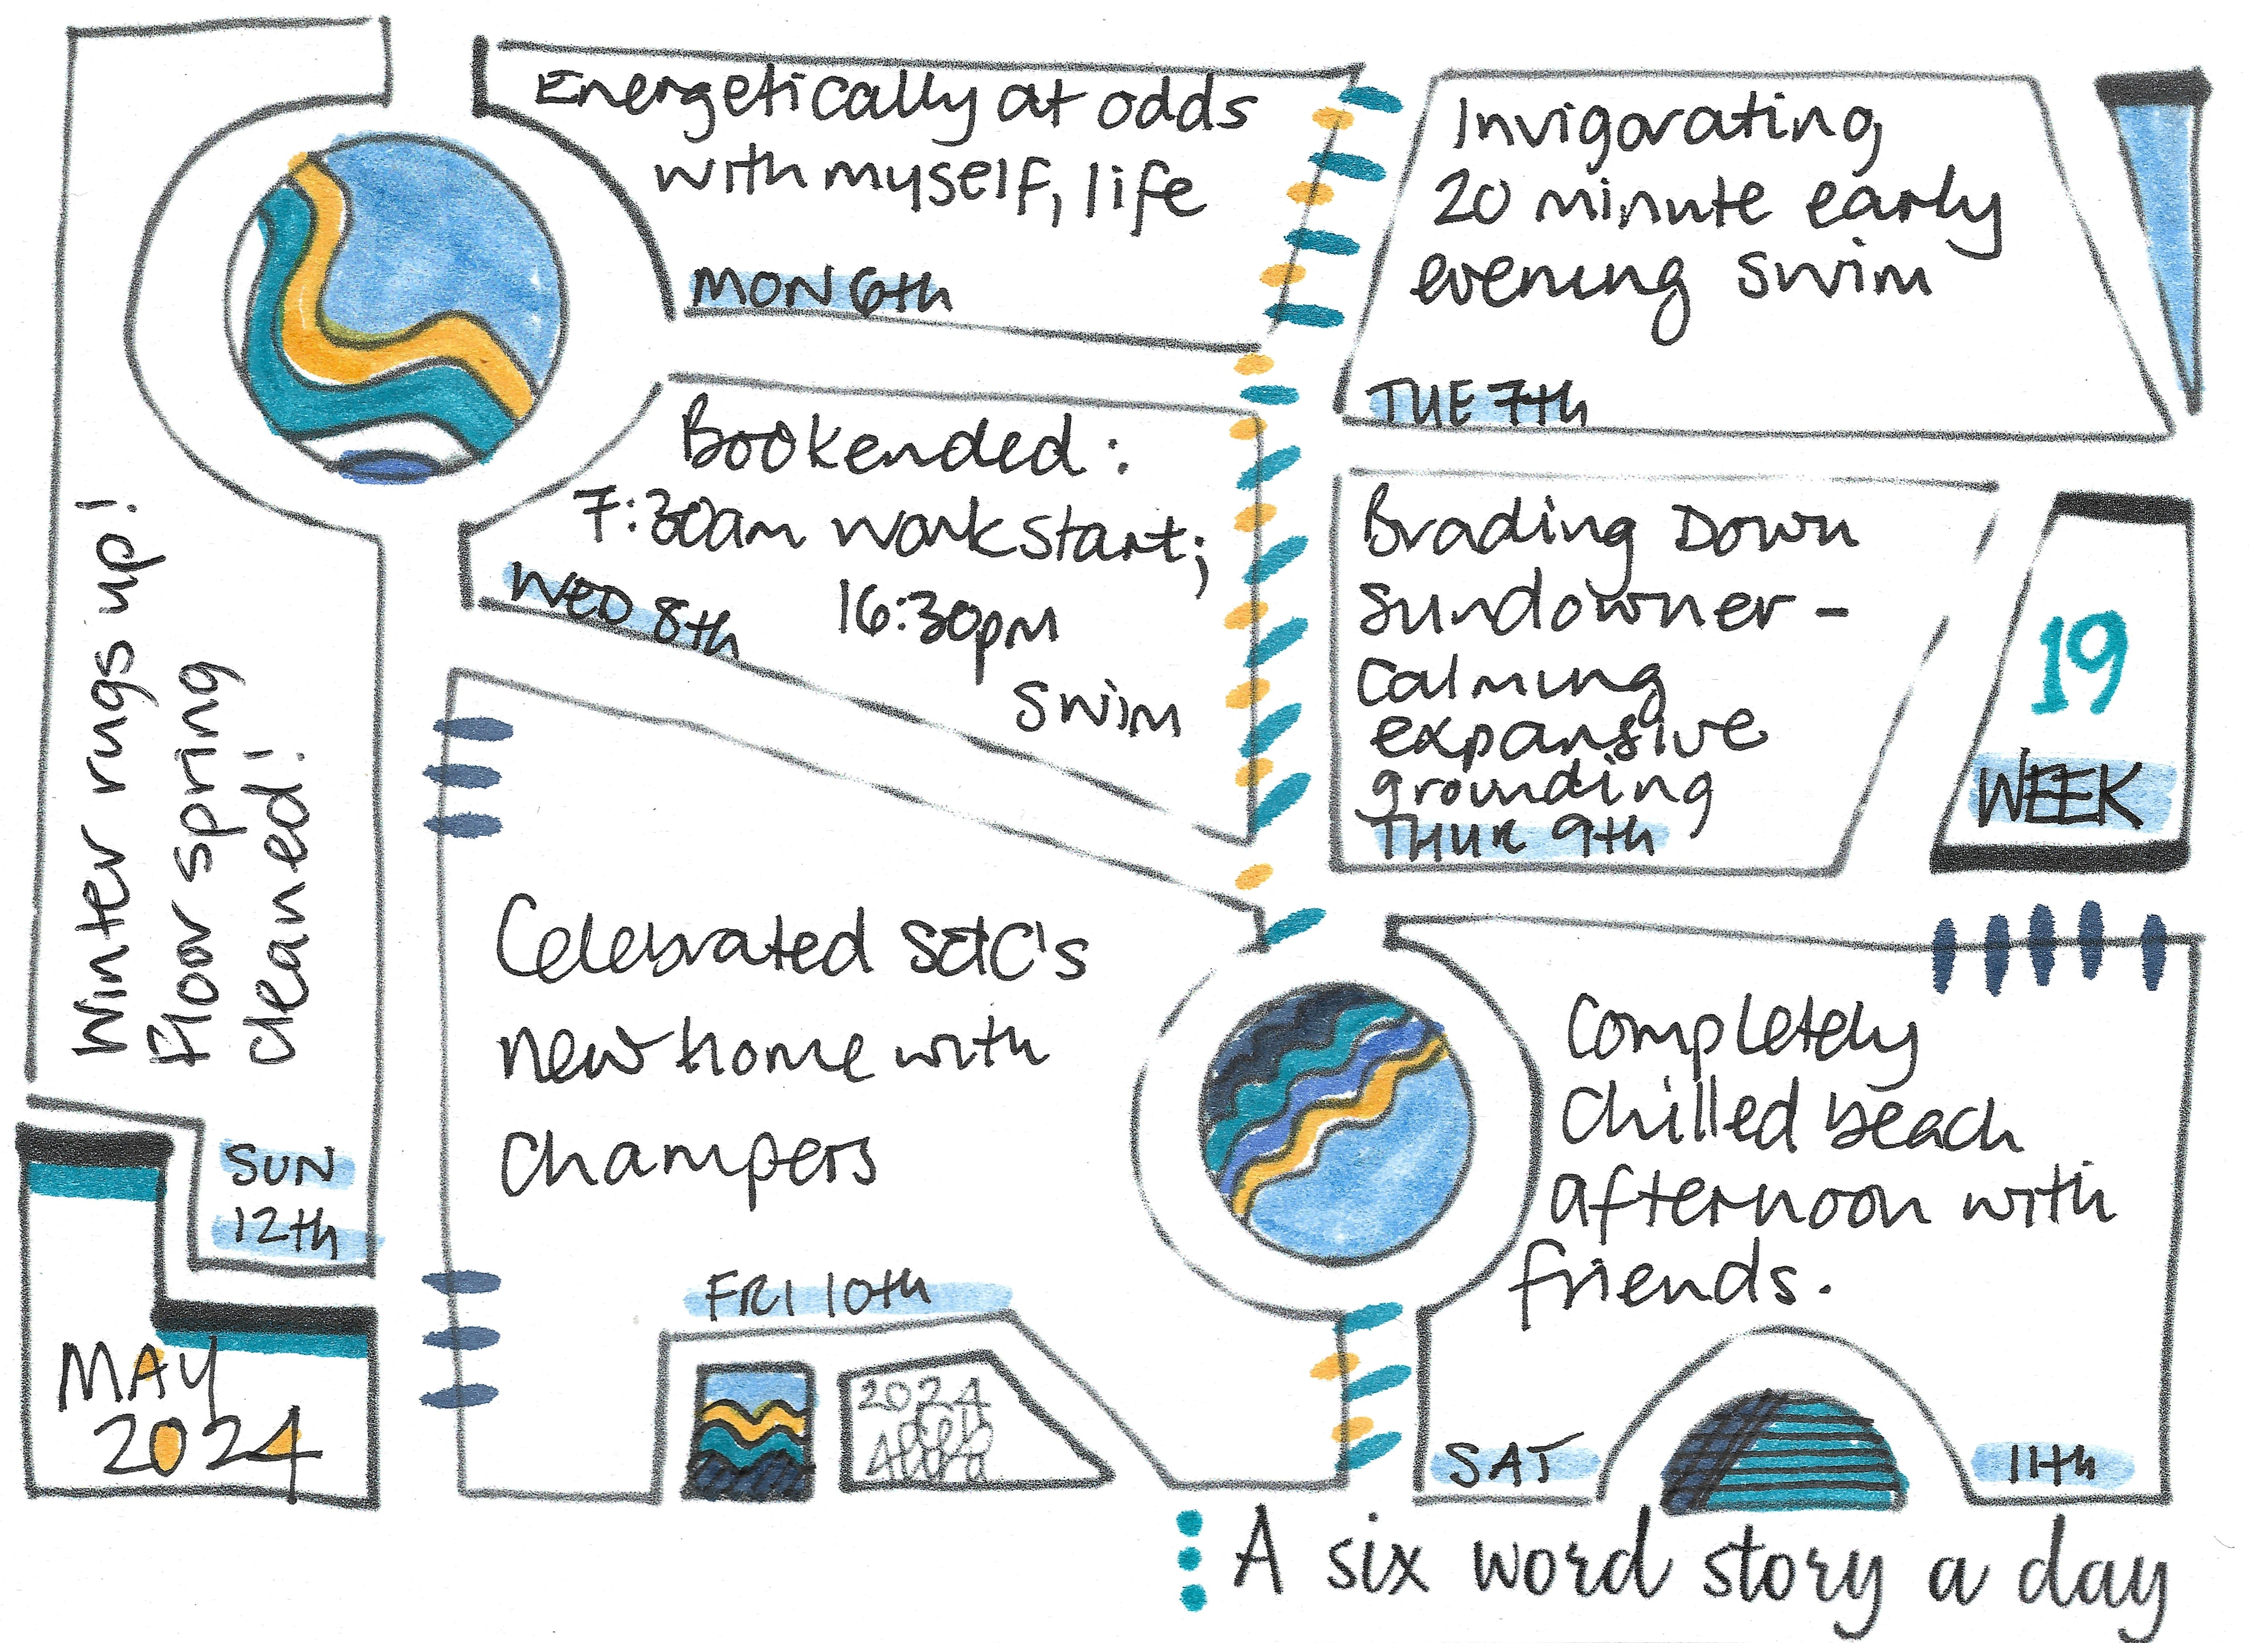 Energetically at odds
with myself, life
MON 6th
Invigorating
20 minute early
evening swim
TUE 7th
Bookended:
7:30am work start;
16:30pm
swim
WED 8th
Brading Down
sundowner -
calming
expansive
grounding
THUR 9th
19
WEEK
Celebrated S&C's
new home with
champers
FRI 10th
2024
Completely
chilled beach
afternoon with
friends.
SAT 11th
Winter rugs up!
Floor spring
cleaned!
SUN
12th
MAY
2024
A six word story a day